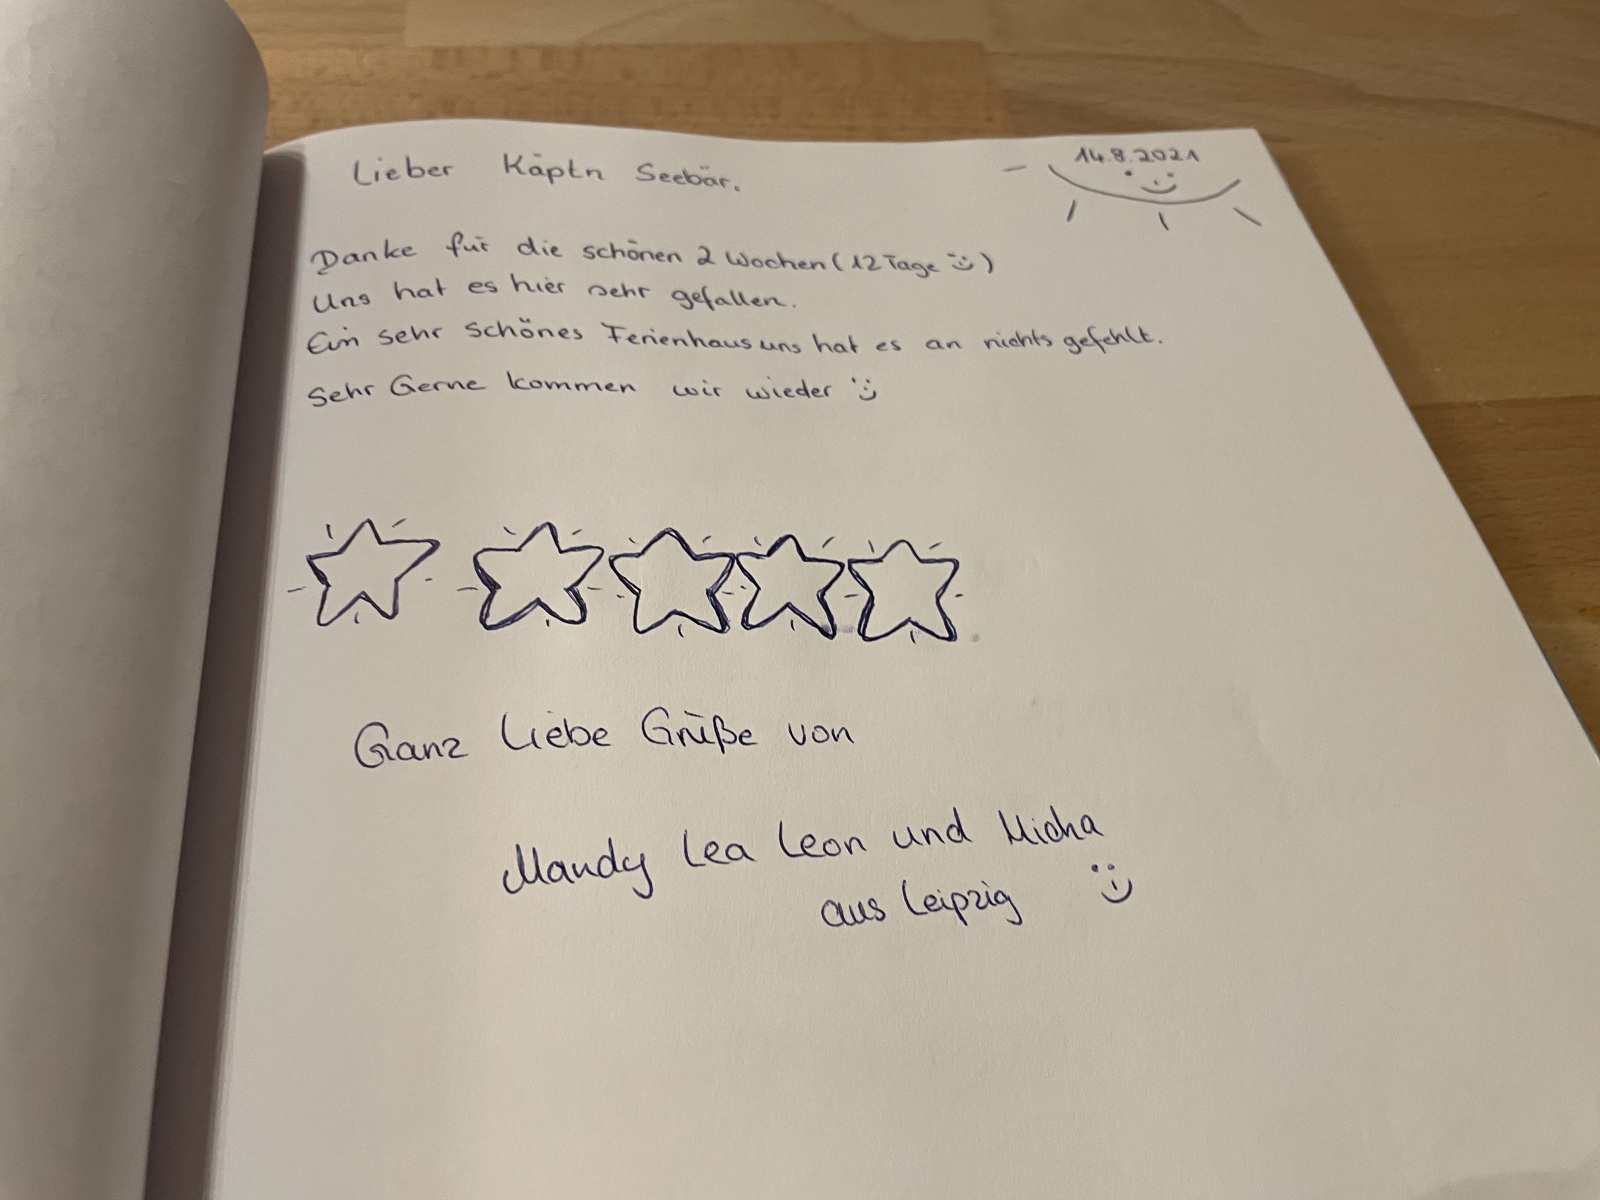 Lieber Käptn Seebär.
14.8.2021
Danke für die schönen 2 Wochen (12 Tage ü)
Uns hat es hier sehr gefallen.
Ein sehr schönes Ferienhaus uns hat es an nichts gefehlt.
Sehr Gerne kommen wir wieder
Ganz Liebe Grüße von
Mandy Lea Leon und Micha
aus Leipzig